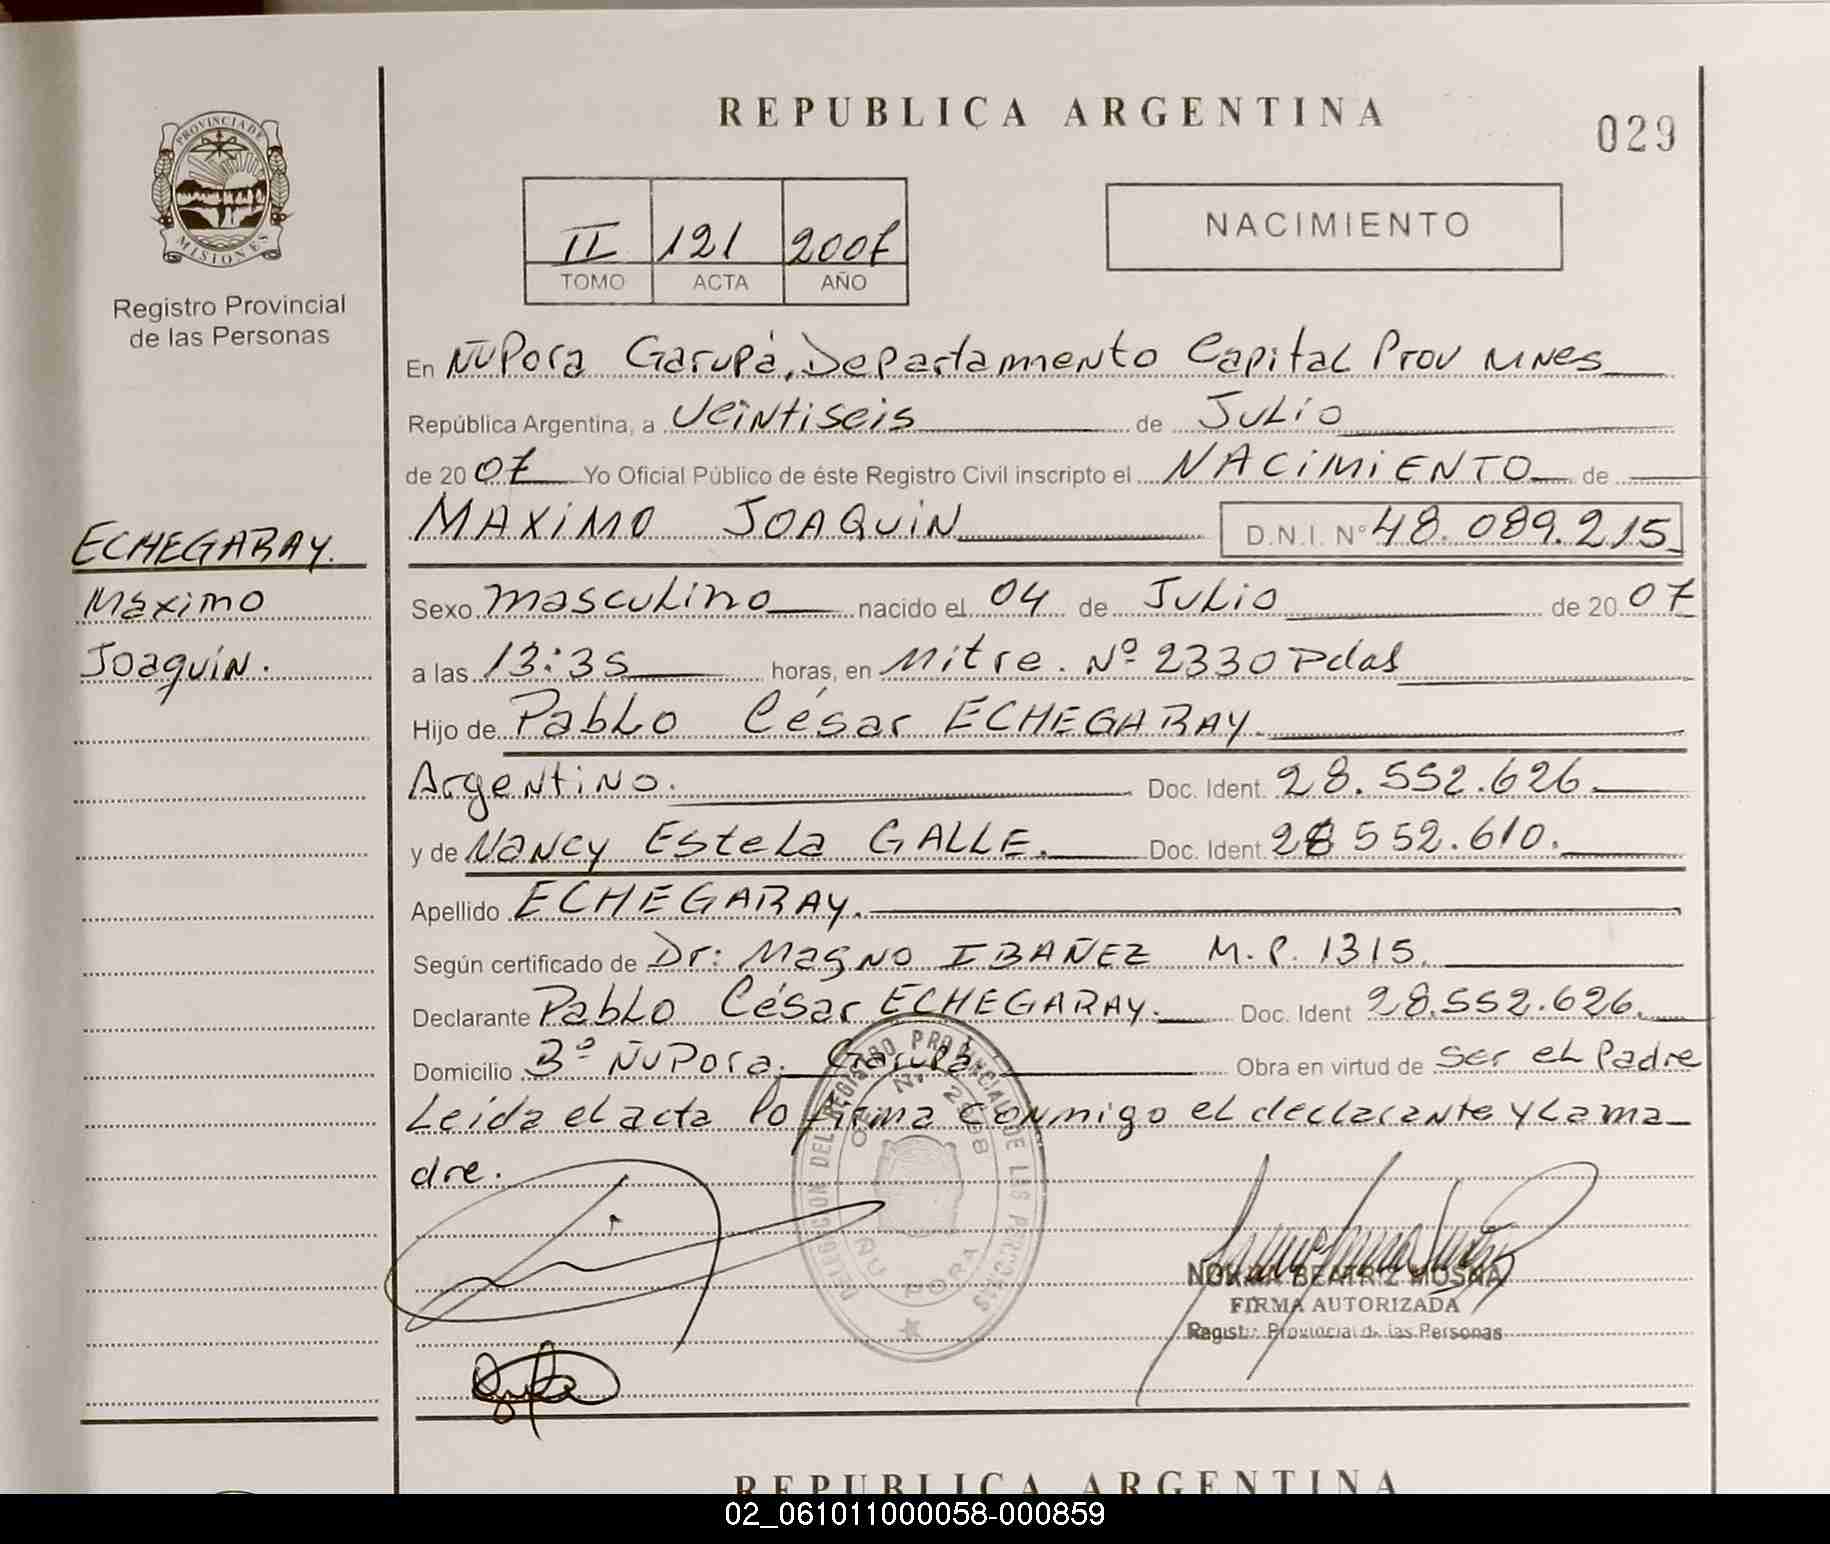 REPUBLICA ARGENTINA
029
PROVINCIA DE
MISIONES
Registro Provincial
de las Personas
II 121 2007
TOMO ACTA AÑO
NACIMIENTO
En ÑuPora Garupá, Departamento Capital Prov Mnes
República Argentina, a Veintiseis de Julio
de 2007 Yo Oficial Público de éste Registro Civil inscripto el NACIMIENTO de
MAXIMO JOAQUIN D.N.I. Nº 48.089.215
ECHEGARAY.
Máximo
Joaquín.
Sexo masculino nacido el 04 de Julio de 2007
a las 13:35 horas, en Mitre. Nº 2330 Pdas
Hijo de Pablo César ECHEGARAY.
Argentino. Doc. Ident. 28.552.626.
y de Nancy Estela GALLE. Doc. Ident. 28 552.610.
Apellido ECHEGARAY.
Según certificado de Dr: Magno IBAÑEZ M.P. 1315.
Declarante Pablo César ECHEGARAY. Doc. Ident 28.552.626.
Domicilio Bº ÑuPora. Garupá Obra en virtud de Ser el Padre
Leída el acta la firma conmigo el declarante y la ma-
dre.
DELEGACION DEL REGISTRO PROVINCIAL DE LAS PERSONAS
ÑU PORA
NORMA BEATRIZ MOSNA
FIRMA AUTORIZADA
Registro Provincial de las Personas
REPUBLICA ARGENTINA
02_061011000058-000859